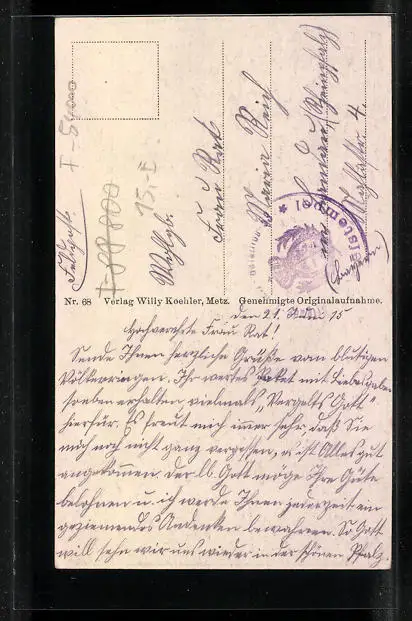 Feldpost.
Wohlgb.
Frau Rat
Maria
in Landau (Rheinpfalz)
4.
(Bayern)
stempel
Nr. 68 Verlag Willy Koehler, Metz. Genehmigte Originalaufnahme.
den 21. 15
Hochverehrte Frau Rat!
Sende Ihnen herzliche Grüße vom blutigen
Völkerringen. Ihr wertes Paket mit Liebesgaben
soeben erhalten vielmals „Vergelts Gott"
hierfür. Es freut mich imer sehr, daß Sie
mich noch nicht ganz vergessen, es ist Alles gut
angekommen. Der lb. Gott möge Ihre Güte
belohnen u. ich werde Ihnen jederzeit ein
geziemendes Andenken bewahren. So Gott
will sehn wir uns wieder in der schönen Pfalz.